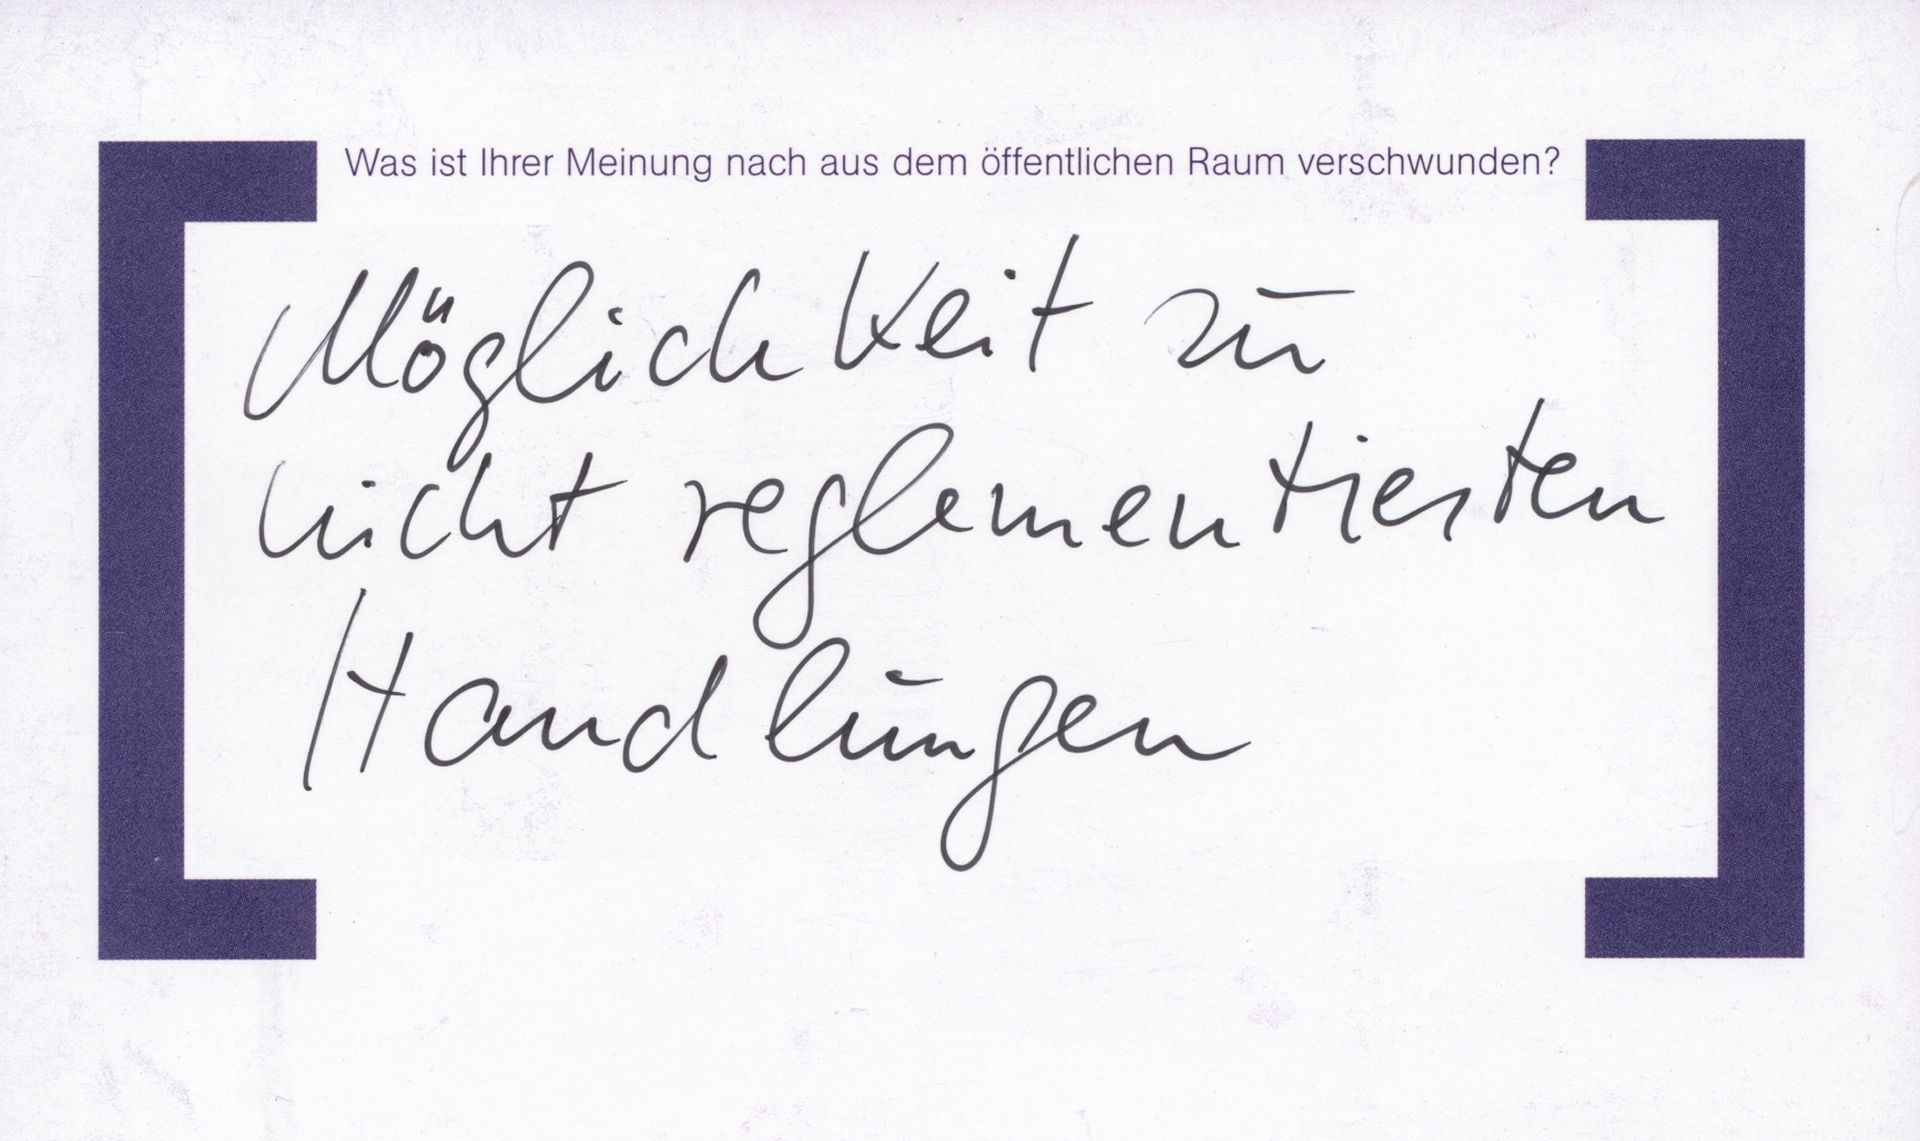 Was ist Ihrer Meinung nach aus dem öffentlichen Raum verschwunden?
Möglichkeit zu
nicht reglementierten
Handlungen